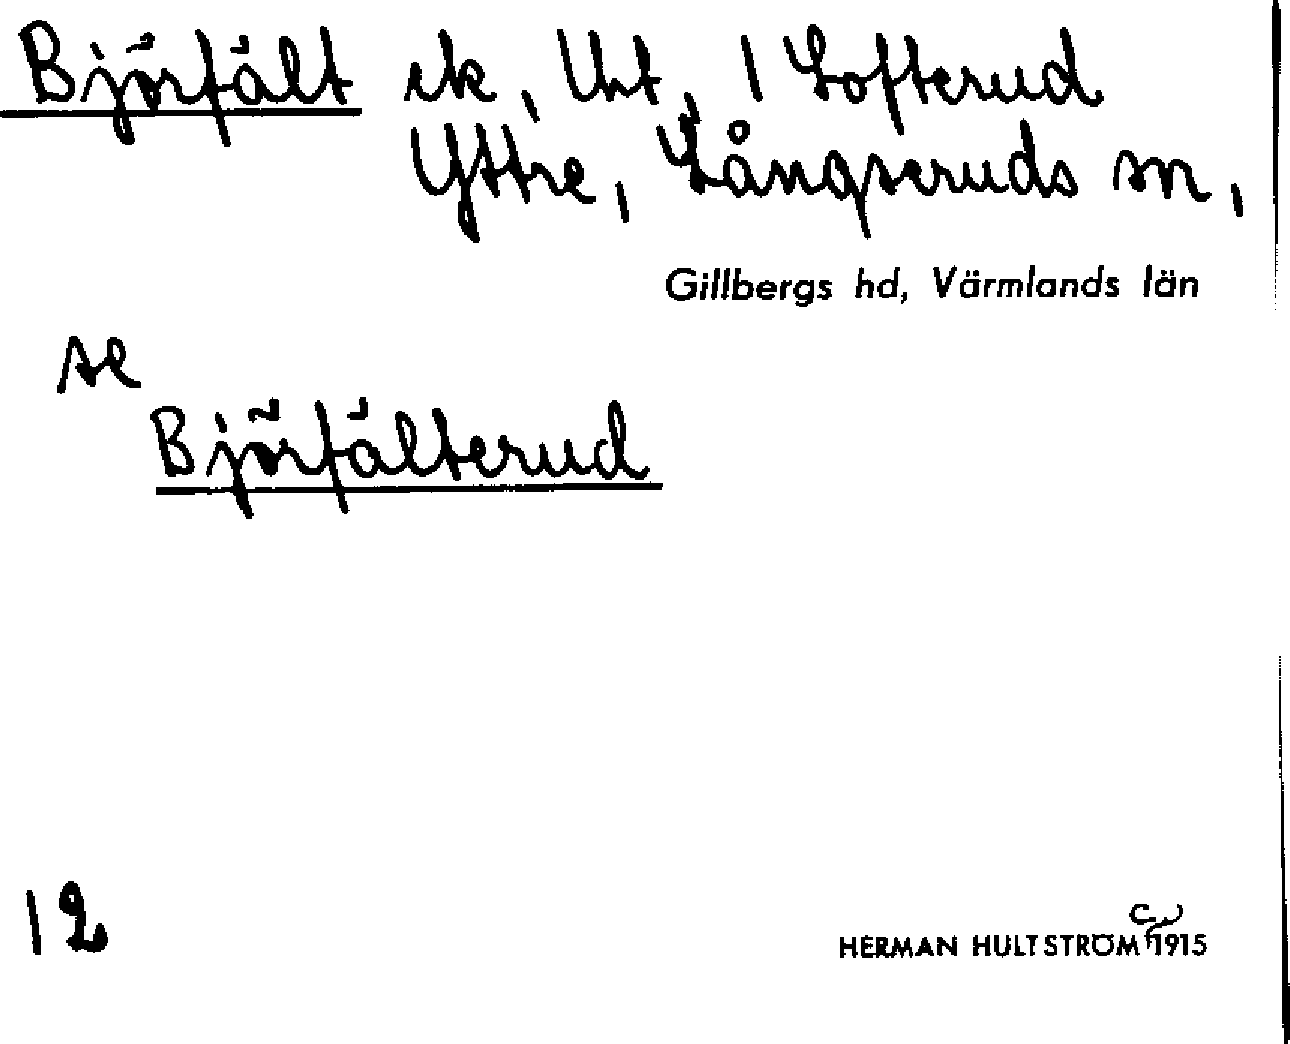 Björfält ek, Uht, 1 Lofterud
Yttre, Långseruds sn,
Gillbergs hd, Värmlands län
se
Björfälterud
12
HERMAN HULTSTRÖM 1915